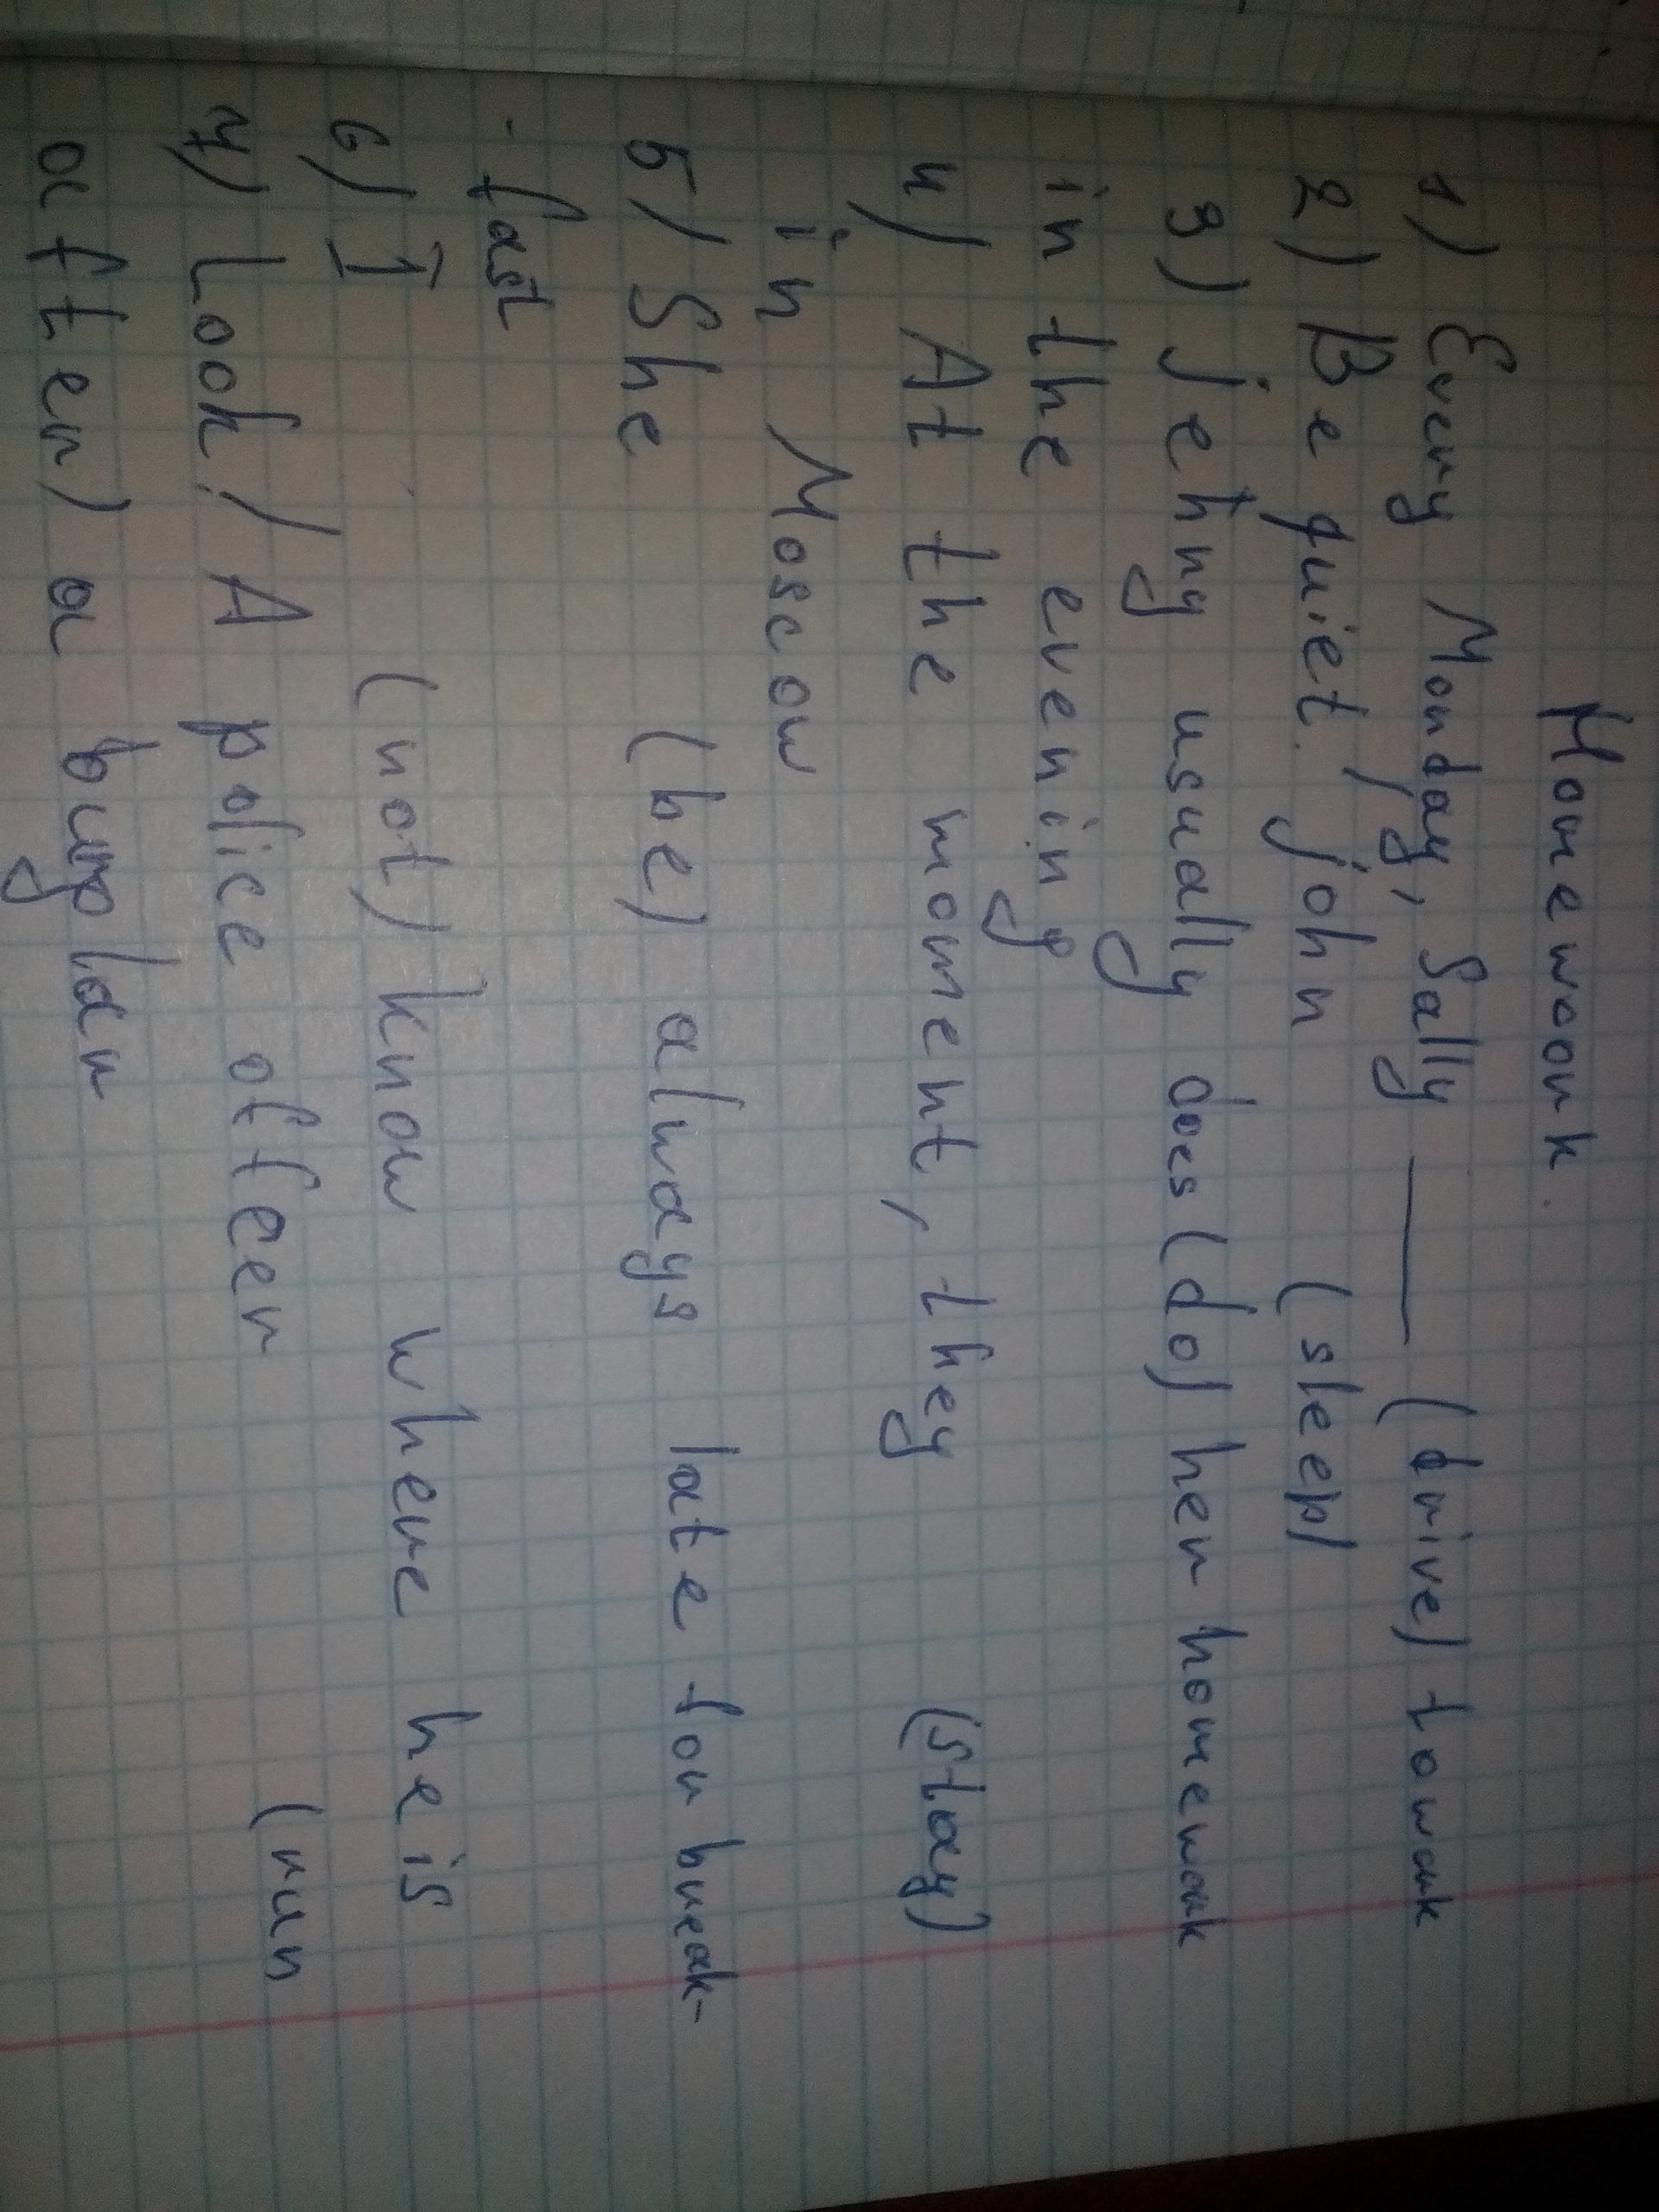 Homework.
1) Every Monday, Sally ____ (drive) towork
2) Be quiet! john (sleep)
3) jehny usually does (do) her homework
in the evening
4) At the moment, they (stay)
in Moscow
5) She (be) always late for break-
fast
6) I (not) know where he is
7) Look! A police officer (run
after) a